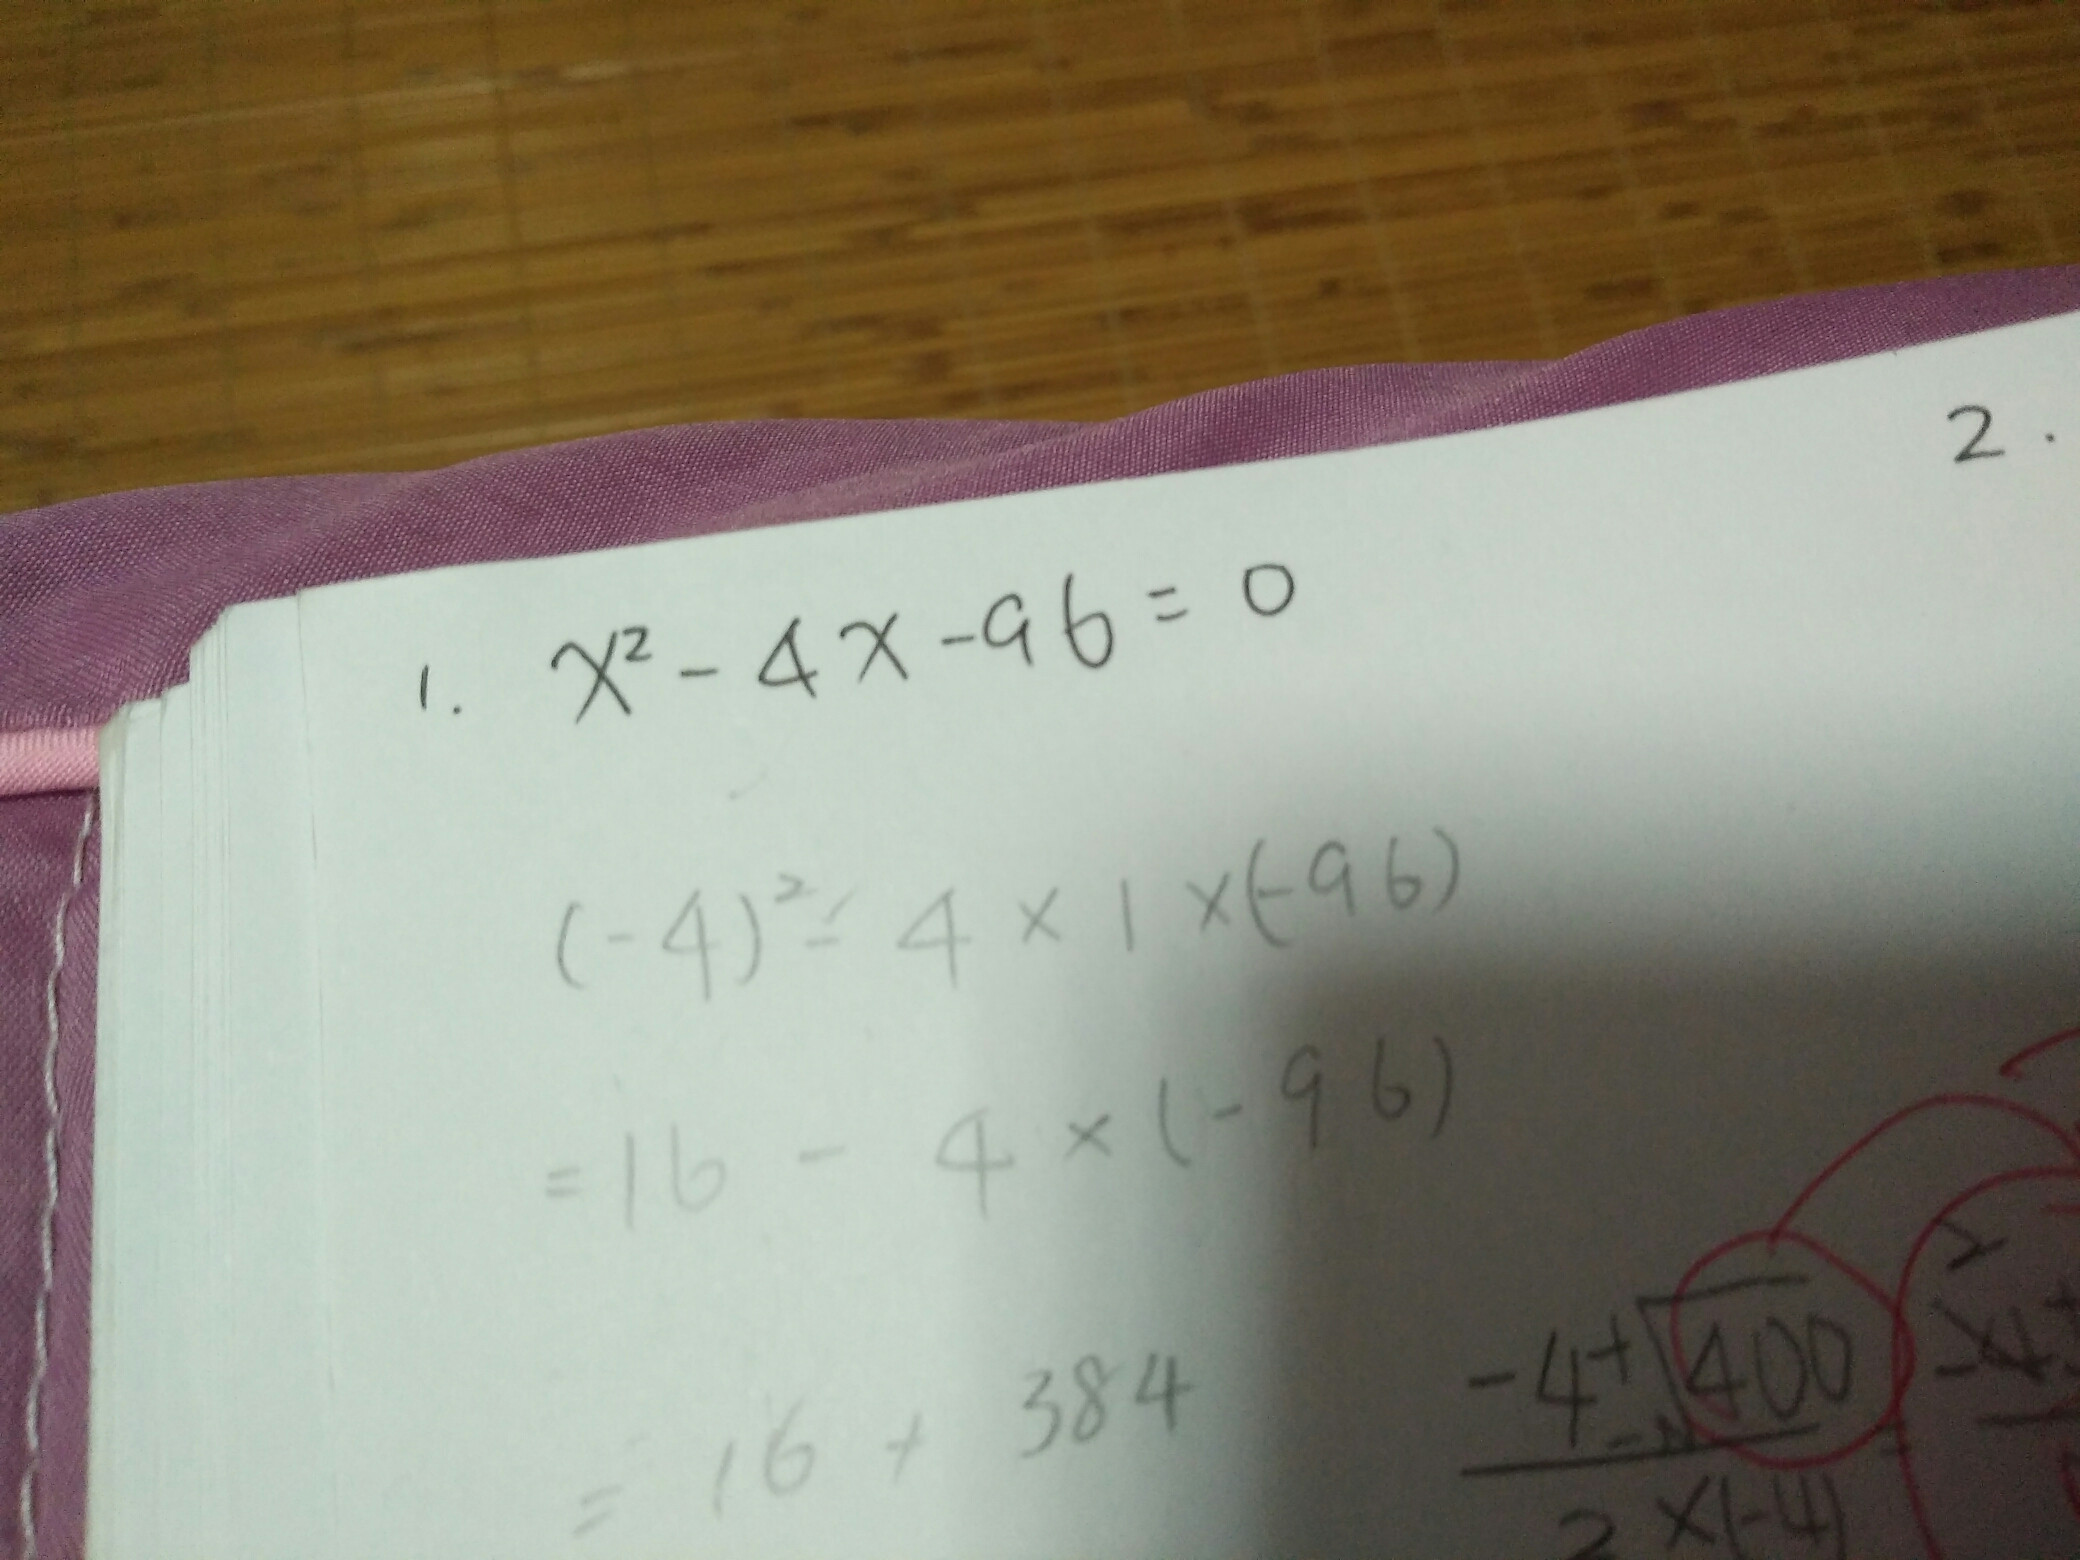 1. x² - 4x - 96 = 0
2.
(-4)² - 4 × 1 × (-96)
= 16 - 4 × (-96)
= 16 + 384
-4 ± √400
2 × (-4)